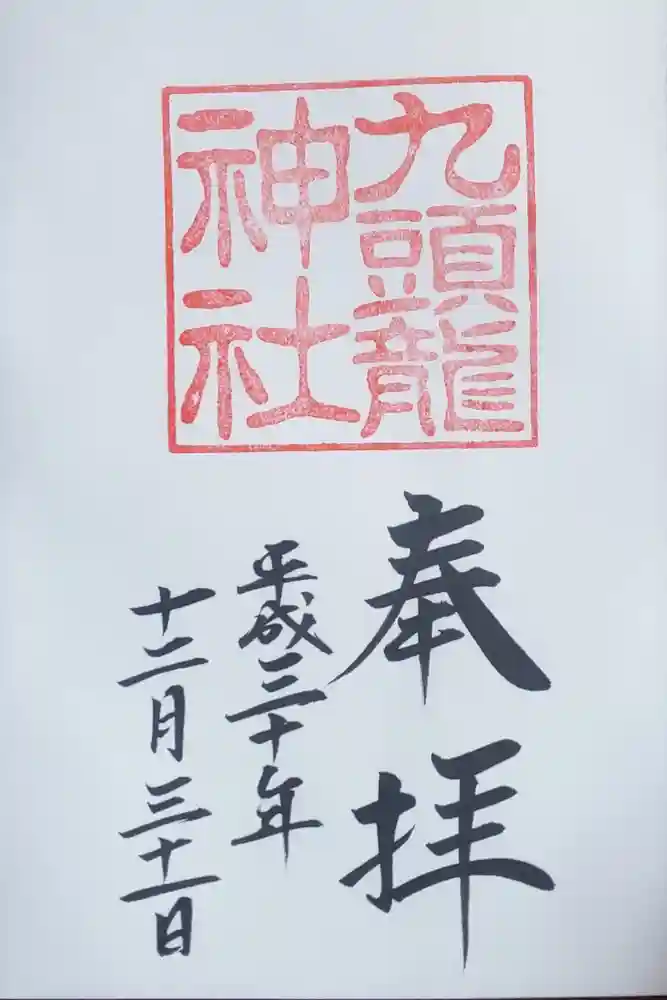 九頭龍
神社
奉拝
平成三十年
十二月三十一日